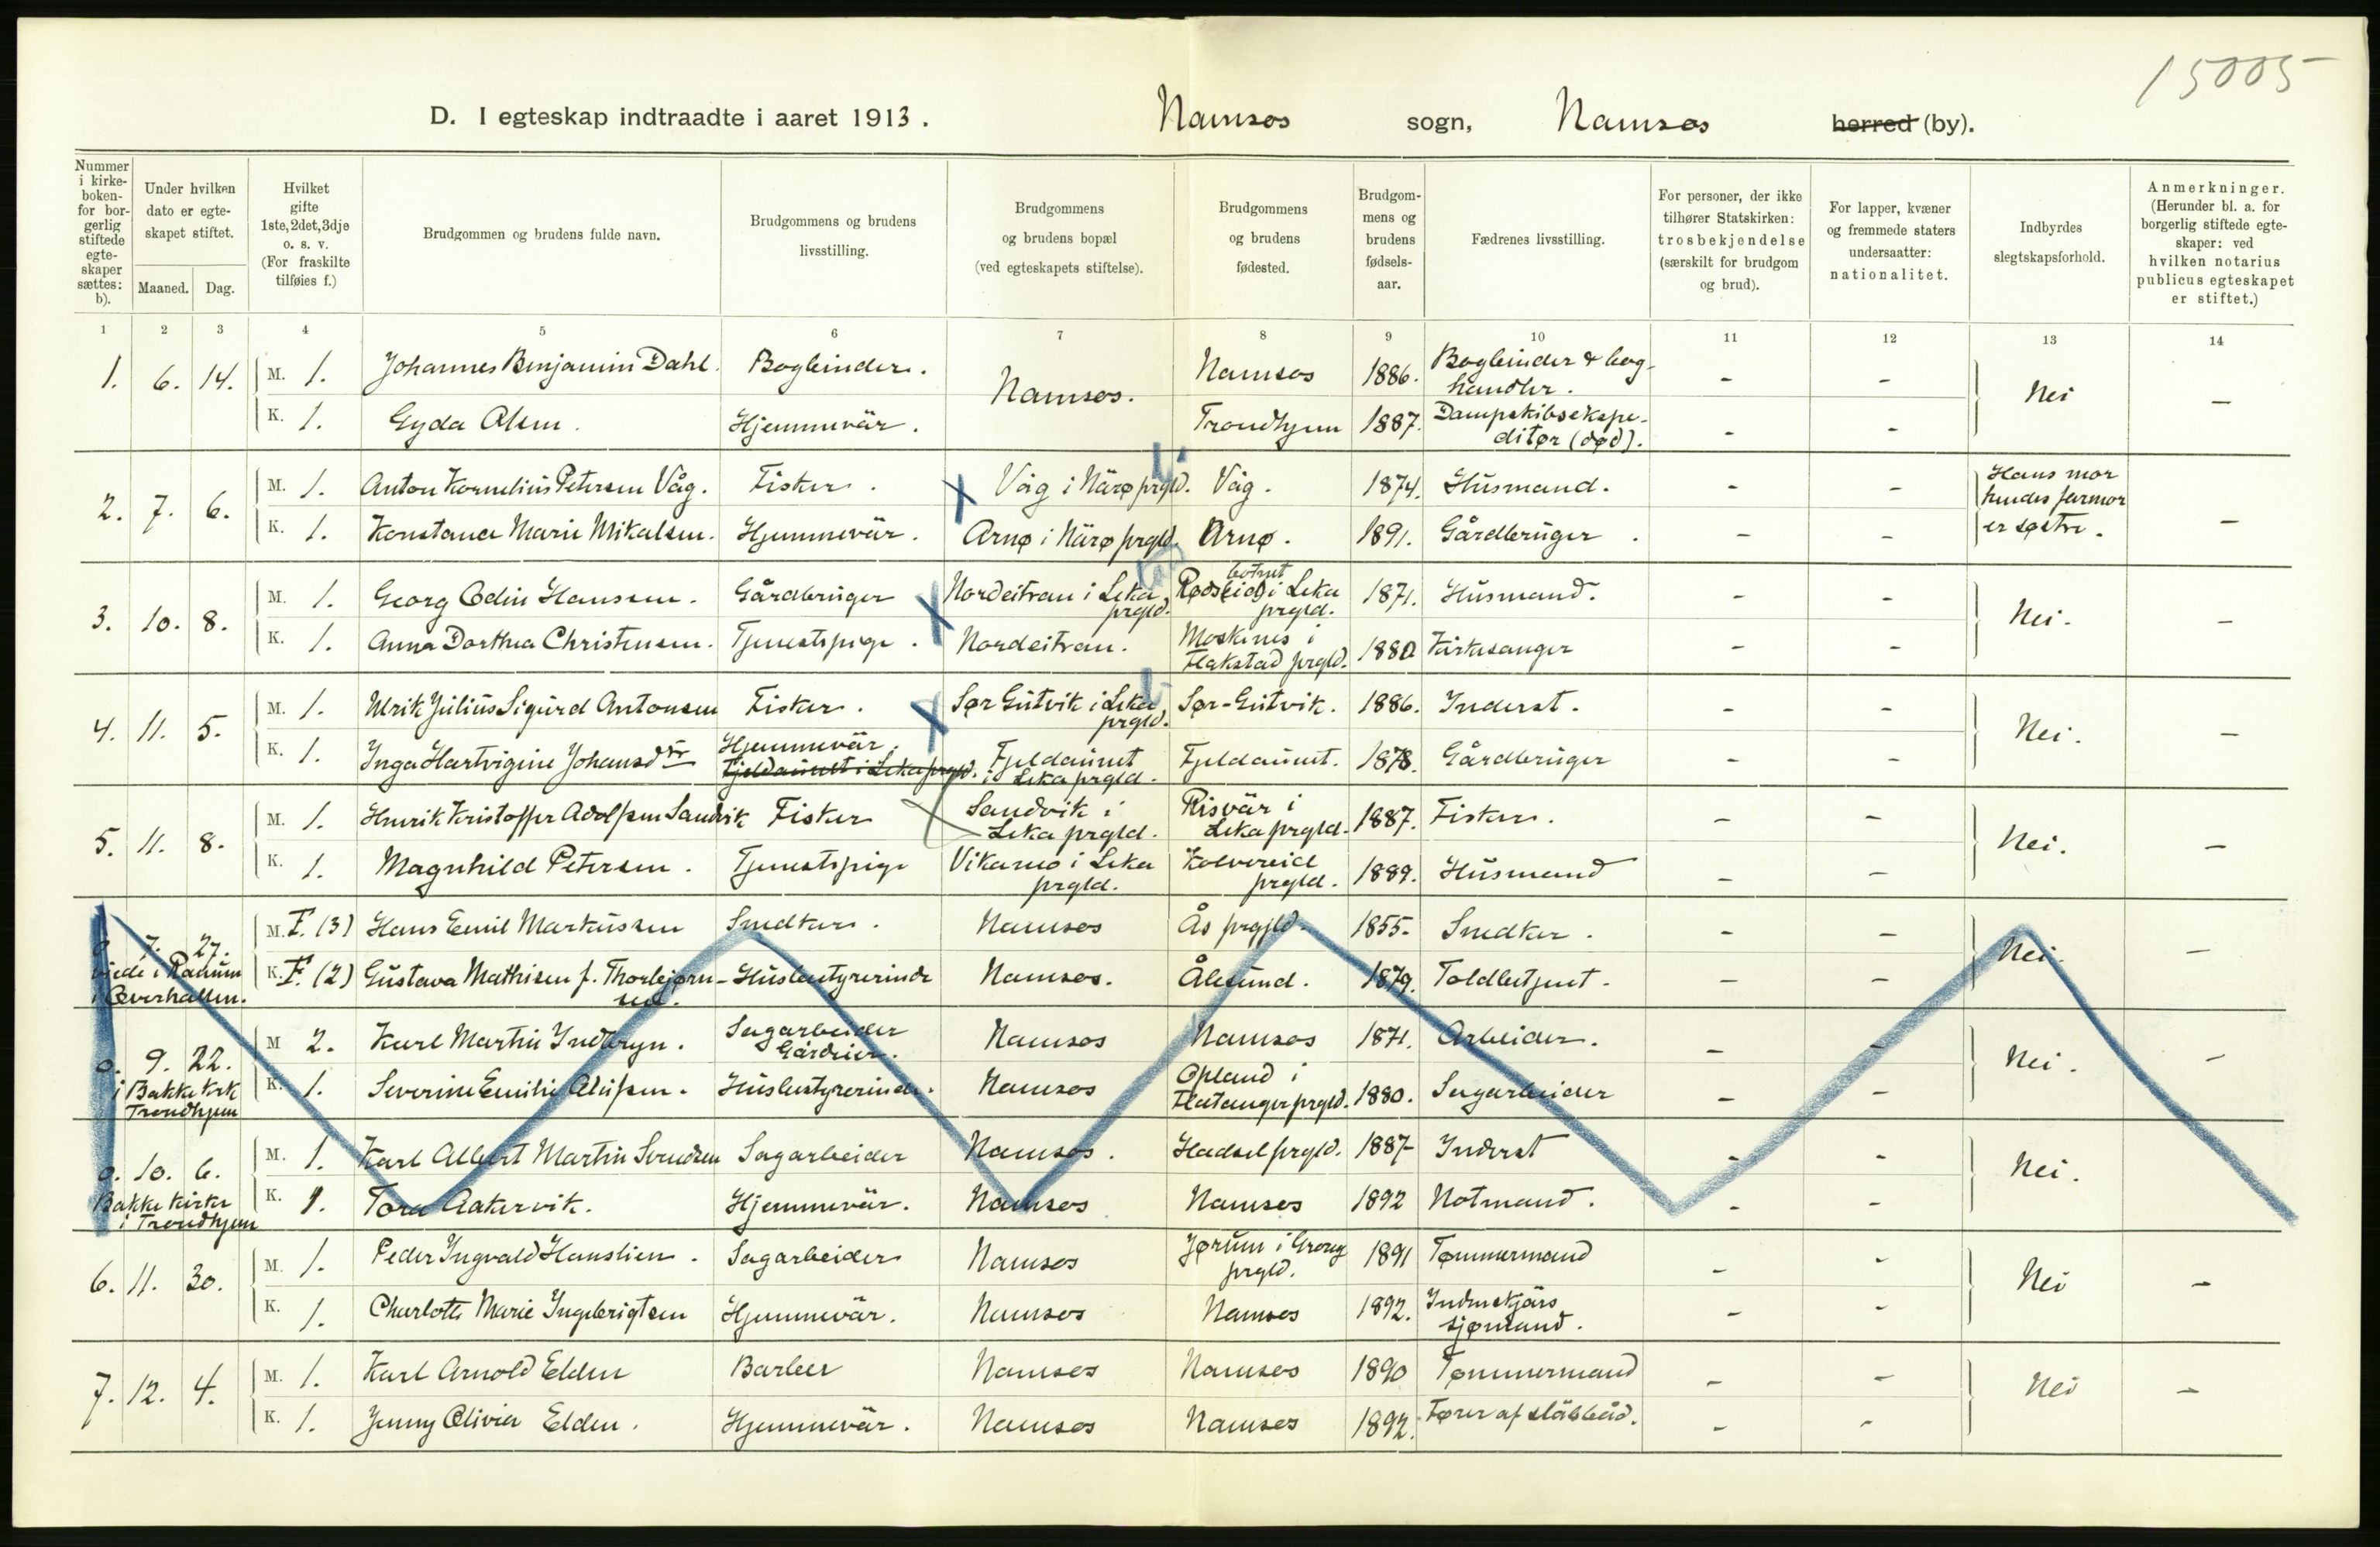 15005
D. I egteskap indtraadte i aaret 1913. Namsos sogn, Namsos herred (by).
Nummer i kirkeboken- for borgerlig stiftede egteskaper sættes: b).
Under hvilken dato er egteskapet stiftet.
Maaned. Dag.
Hvilket gifte 1ste, 2det, 3dje o. s. v. (For fraskilte tilføies f.)
Brudgommen og brudens fulde navn.
Brudgommens og brudens livsstilling.
Brudgommens og brudens bopæl (ved egteskapets stiftelse).
Brudgommens og brudens fødested.
Brudgommens og brudens fødselsaar.
Fædrenes livsstilling.
For personer, der ikke tilhører Statskirken: trosbekjendelse (særskilt for brudgom og brud).
For lapper, kvæner og fremmede staters undersaatter: nationalitet.
Indbyrdes slegtskapsforhold.
Anmerkninger. (Herunder bl. a. for borgerlig stiftede egteskaper: ved hvilken notarius publicus egteskapet er stiftet.)
1 2 3 4 5 6 7 8 9 10 11 12 13 14
1. 6. 14. M. 1. Johannes Benjamin Dahl. Bogbinder. Namsos. Namsos 1886. Bogbinder & boghandler. - - Nei -
K. 1. Gyda Olsen. Hjemmevär. Trondhjem 1887. Dampskibsekspeditør (død). - -
2. 7. 6. M. 1. Anton Kornelius Petersen Våg. Fisker. Våg i Närø prgld. Våg. 1874. Husmand. - - Hans mor hendes farmor er søstre. -
K. 1. Konstance Marie Mikalsen. Hjemmevär. Arnø i Närø prgld. Arnø. 1891. Gårdbruger. - -
3. 10. 8. M. 1. Georg Odin Hansen. Gårdbruger Nordeitran i Leka prgld. Rødsbotnet (eid) i Leka prgld. 1871. Husmand. - - Nei. -
K. 1. Anna Dorthea Christensen. Tjenestpige. Nordeitran. Moskenes i Flakstad prgld. 1880 Kirkesanger - -
4. 11. 5. M. 1. Ulrik Julius Sigurd Antonsen Fisker. Sør Gutvik i Leka prgld. Sør-Gutvik. 1886. Inderst. - - Nei. -
K. 1. Inga Hartvigine Johansdtr Hjemmevär. Fjeldaunet i Leka prgld. Fjeldaunet i Leka prgld. Fjeldaunet. 1878. Gårdbruger - -
5. 11. 8. M. 1. Henrik Kristoffer Adolfsen Sandvik Fisker Sandvik i Leka prgld. Risvär i Leka prgld. 1887. Fisker. - - Nei. -
K. 1. Magnhild Petersen. Tjenestpige Vikarnø i Leka prgld. Kolvereid prgld. 1889. Husmand - -
0. 7. 27. viede i Ranum i Overhallen. M. F. (3) Hans Emil Markussen Snedker. Namsos Ås prgjld. 1855. Snedker. - - Nei. -
K. F. (2) Gustava Mathisen f. Thorbjørnsen. Husbestyrerinde Namsos. Ålesund. 1879. Toldbetjent. - -
0. 9. 22. i Bakke kirk Trondhjem M 2. Karl Martin Indbryn. Sagarbeider Gårdeier. Namsos Namsos 1871. Arbeider. - - Nei. -
K. 1. Severine Emilie Olufsen. Husbestyrerinde. Namsos Opland i Flatanger prgld. 1880. Sagarbeider - -
0. 10. 6. Bakke kirke i Trondhjem M. 1. Karl Albert Martin Svendsen Sagarbeider Namsos. Hadsel prgld. 1887 Inderst - - Nei.
K. 1. Tora Aakervik. Hjemmevär. Namsos Namsos 1892 Notmand. - -
6. 11. 30. M. 1. Peder Ingvald Hanslien. Sagarbeider Namsos Jørum i Grong prgld. 1891 Tømmermand - - Nei -
K. 1. Charlotte Marie Ingebrigtsen Hjemmevär. Namsos Namsos 1892. Indenskjärs sjømand. - -
7. 12. 4. M. 1. Karl Arnold Elden Barber Namsos Namsos 1890 Tømmermand - - Nei -
K. 1. Jenny Olivia Elden. Hjemmevär. Namsos Namsos 1892. Fører af släbbåd. - -